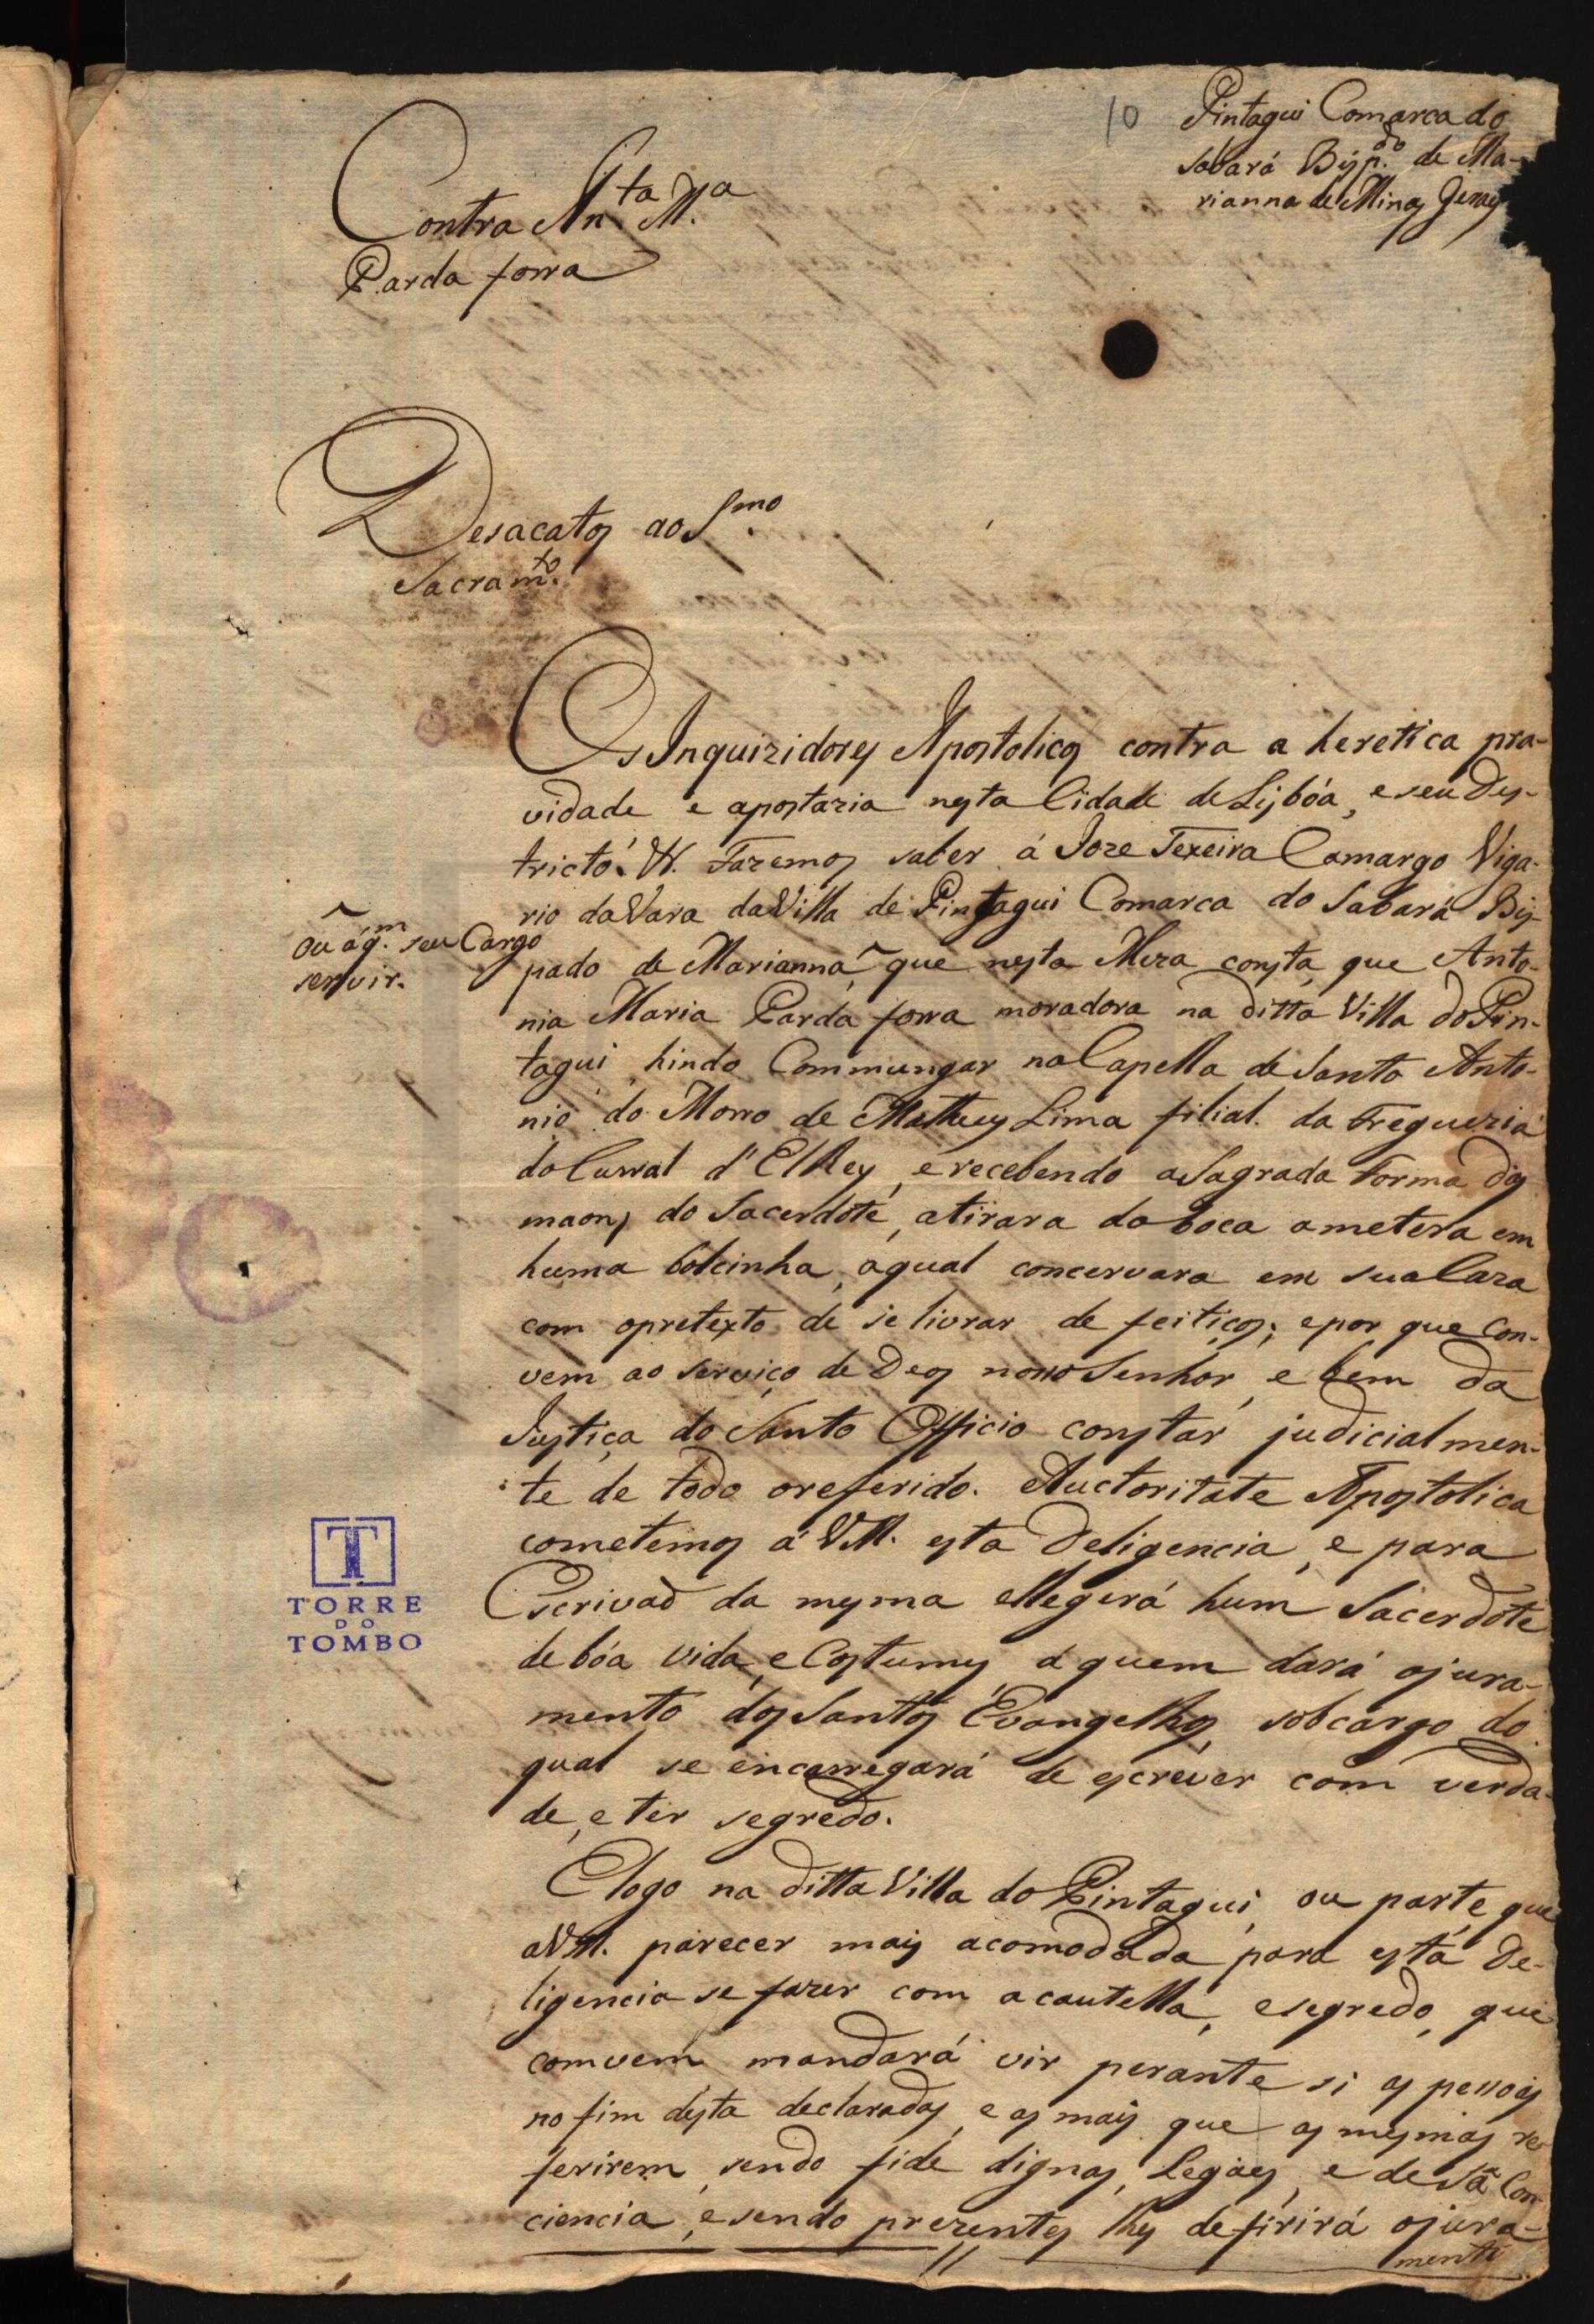 10
Pintagui Comarca do
Sabará Bisp.do de Ma-
rianna de Minas Geraes
Contra An.ta M.a
Parda forra
Desacatos ao S.mo
Sacram.to
Os Inquizidores Apostolicos contra a heretica pra-
vidade e apostazia nesta Cidade de Lisbóa, e seu Des-
tricto. &. Fazemos saber á Joze Texeira Camargo Viga-
rio da Vara da Villa de Pintagui Comarca do Sabará Bis-
ou á q.m seu Cargo
servir.
pado de Marianna^ que nesta Meza consta, que Anto-
nia Maria Parda forra moradora na ditta Villa do Pin-
tagui, hindo Commungar na Capella de Santo Anto-
nio do Morro de Matheus Lima filial da Freguezia
do Curral d'El Rey, e recebendo a Sagrada Forma das
maons do Sacerdote, a tirara da boca a metera em
huma bolcinha, a qual concervara em sua Caza
com o pretexto de se livrar de feitiços; e por que Con-
vem ao serviço de Deos nosso Senhor, e bem da
Justiça do Santo Officio constar judicialmen-
te de todo o referido. Auctoritate Apostolica
cometemos á VM. esta Deligencia, e para
Escrivaõ da mesma ellegerá hum Sacerdote
de bóa vida, e Costumes, a quem dará o jura-
mento dos Santos Evangelhos, sob cargo do
qual se encarregará de escrever com verda-
de, e ter segredo.
E logo na ditta Villa do Pintagui, ou parte que
a VM. parecer mais acomodada para esta De-
ligencia se fazer com a cautella, e segredo, que
comvem, mandará vir perante si as pessoas
no fim desta declaradas, e as mais que as mesmas re-
ferirem, sendo fide dignas, Legaes, e de Sã Con-
ciencia, e sendo prezentes lhes defirirá o jura-
mento
TORRE
DO
TOMBO